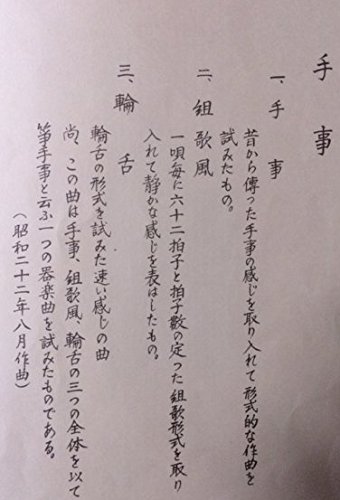 手事
一、手事
昔から傳った手事の感じを取り入れて形式的な作曲を
試みたもの。
二、組歌風
一唄毎に六十二拍子と拍子数の定った組歌形式を取り
入れて静かな感じを表はしたもの。
三、輪舌
輪舌の形式を試みた速い感じの曲
尚、この曲は手事、組歌風、輪舌の三つの全体を以て
箏手事と云ふ一つの器楽曲を試みたものである。
(昭和二十二年八月作曲)